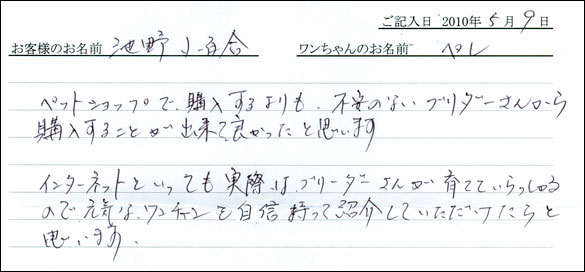 ご記入日 2010年5月9日
お客様のお名前 池野小百合 ワンちゃんのお名前 ペレ
ペットショップで購入するよりも、不安のないブリダーさんから
購入することが出来て良かったと思います
インターネットといっても実際は、ブリーダーさんが育てていらっしゃる
ので元気な、ワンチャンを自信持って紹介していただけたらと
思います。